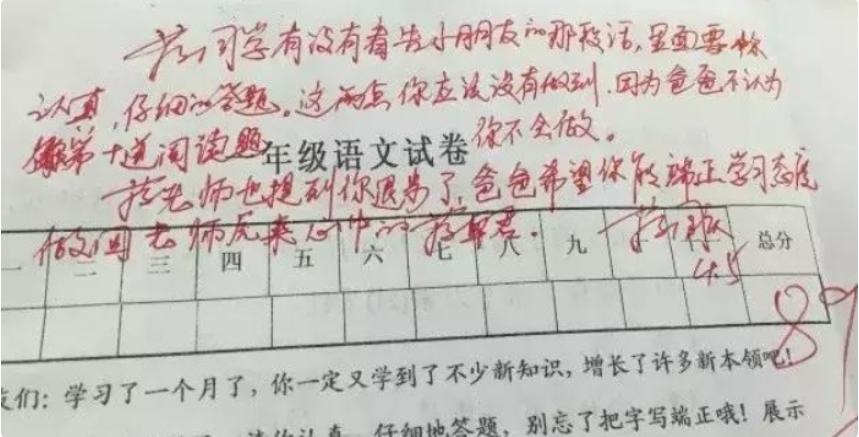 同学有没有看告小朋友的那段话,里面要你
认真,仔细的答题。这两点你应该没有做到,因为爸爸不认为
第十道阅读题你不会做。
年级语文试卷
老师也提到你退步了,爸爸希望你能端正学习态度
做回老师原来心中的
一 二 三 四 五 六 七 八 九 十 总分
4.5
89
友们:学习了一个月了,你一定又学到了不少新知识,增长了许多新本领吧!
请你认真、仔细地答题,别忘了把字写端正哦!展示